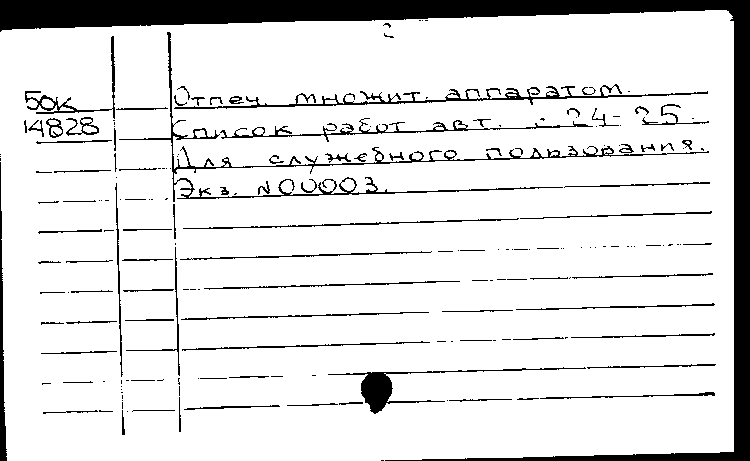 2
50к Отпеч. множит. аппаратом.
14828 Список работ авт. : 24-25.
Для служебного пользования.
Экз. N00003.